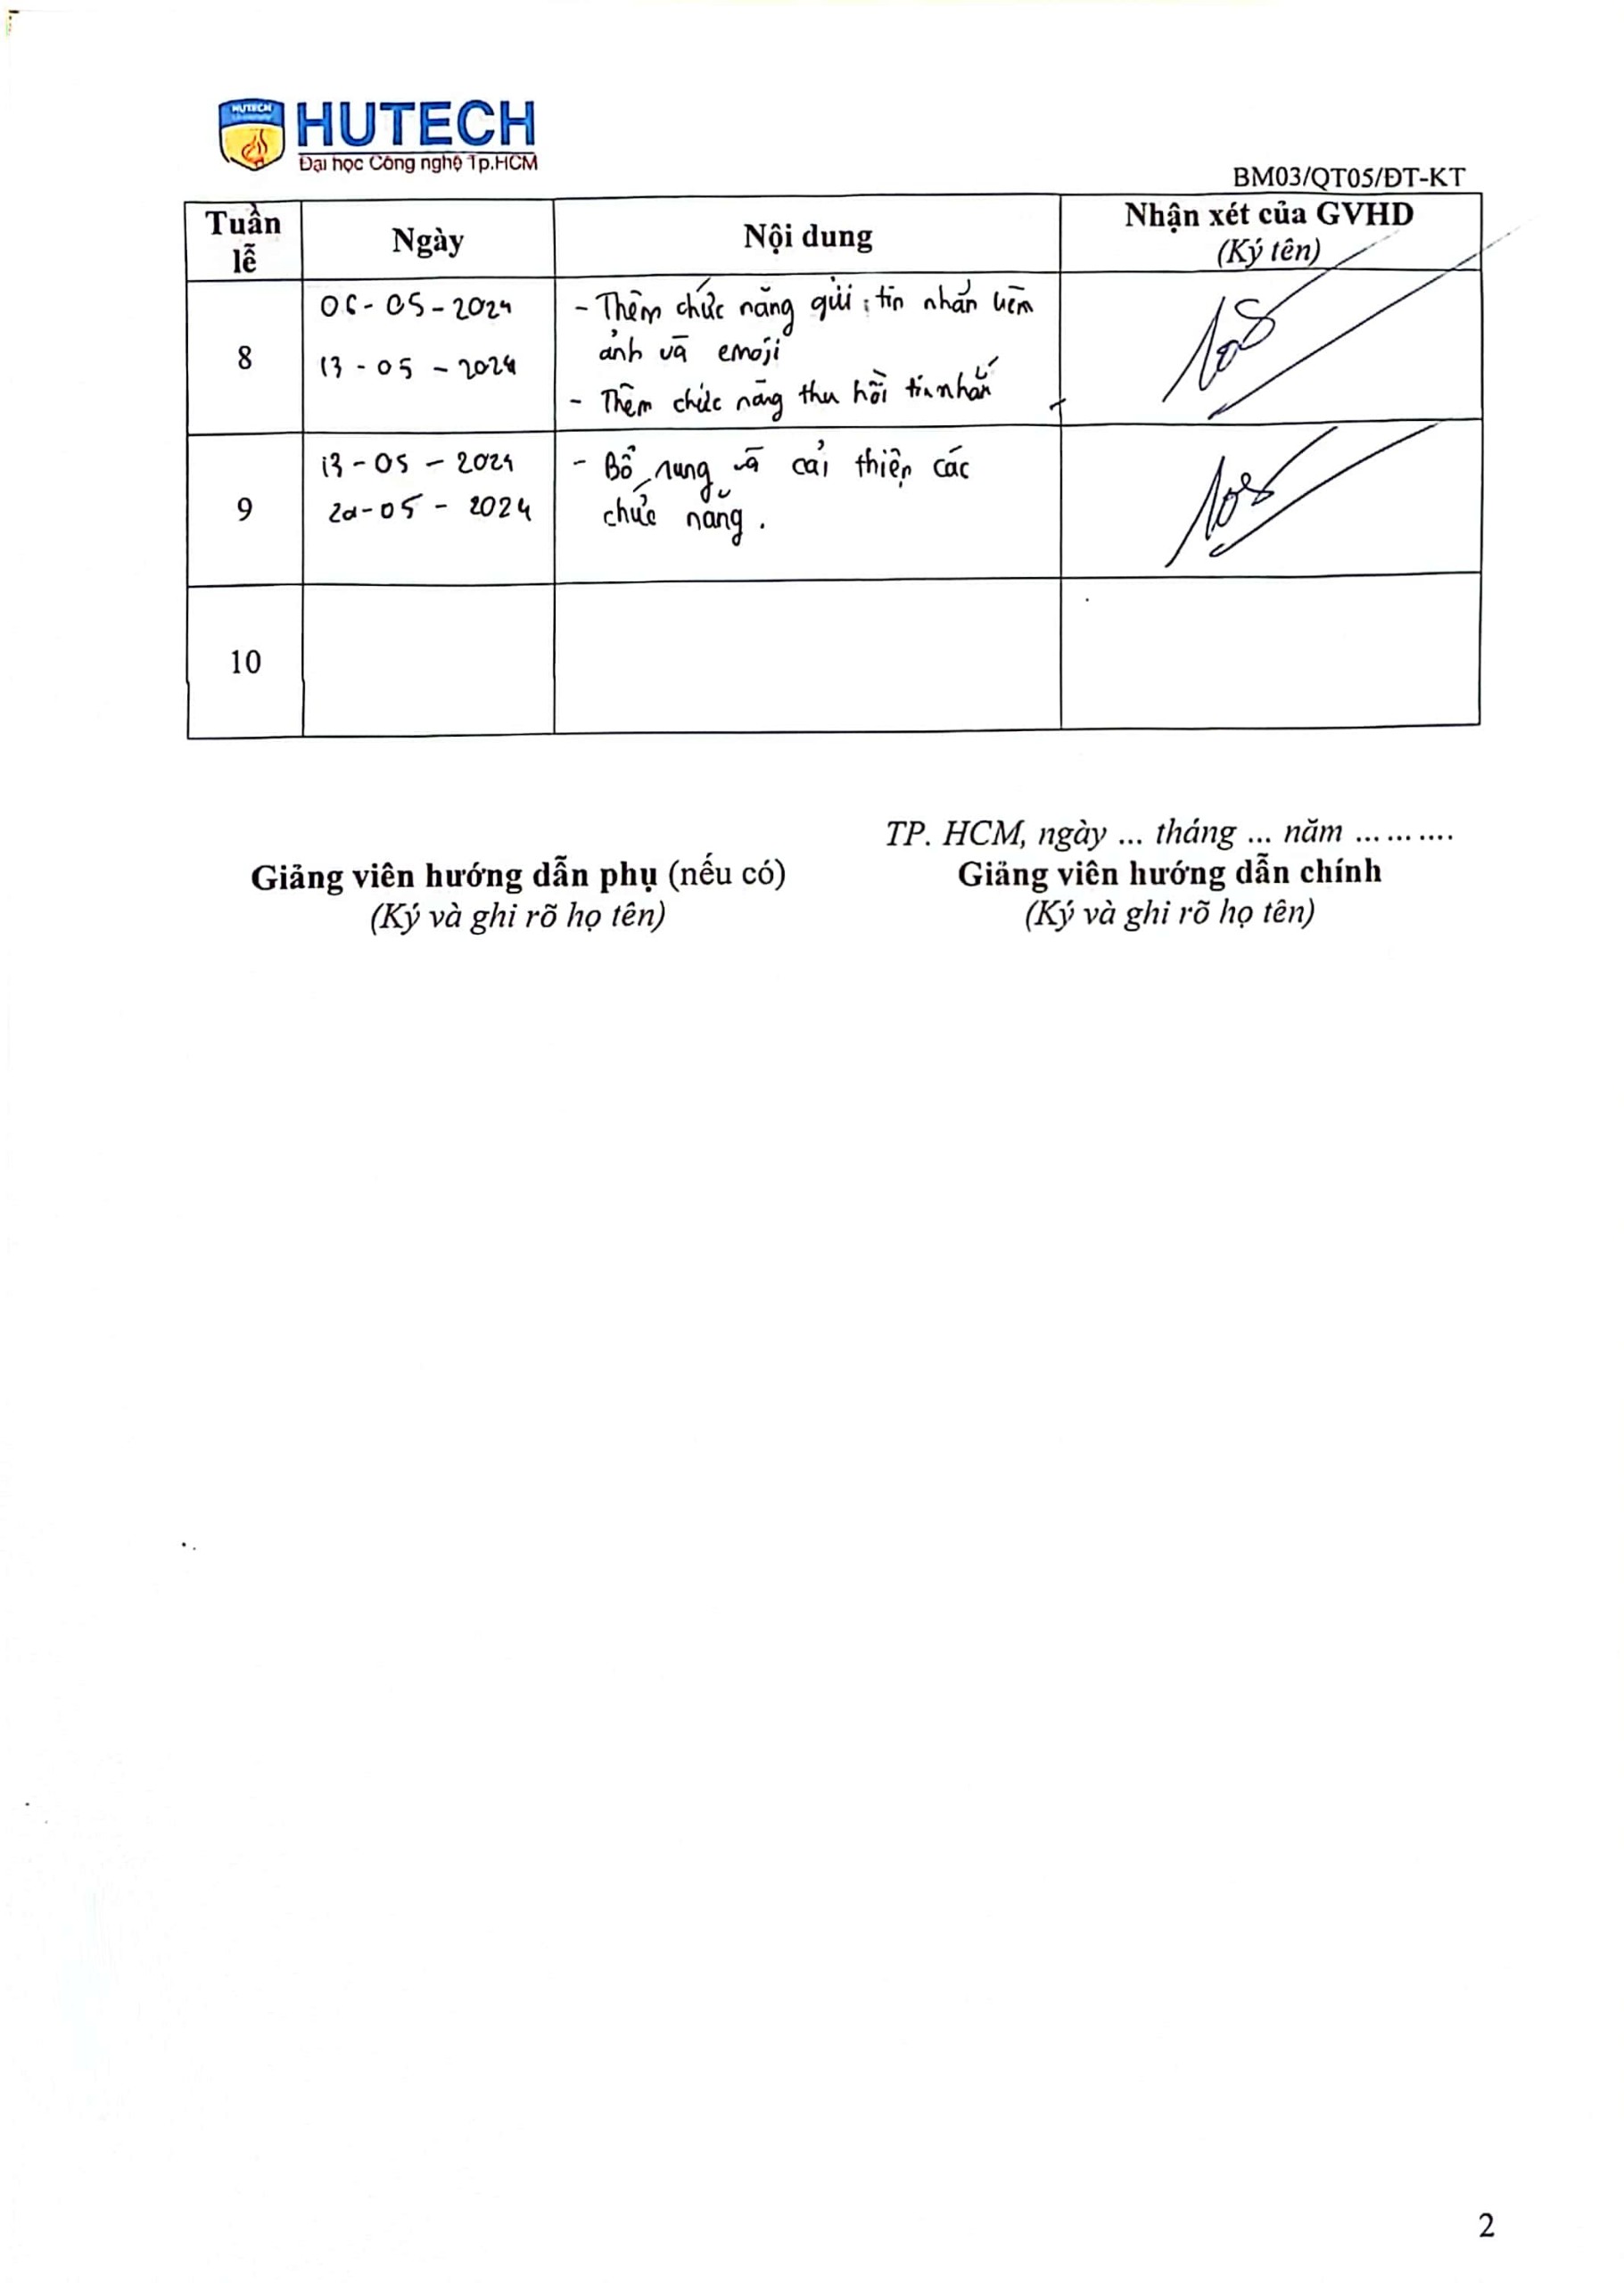 HUTECH
HUTECH
Đại học Công nghệ Tp.HCM
BM03/QT05/ĐT-KT
Tuần lễ
Ngày
Nội dung
Nhận xét của GVHD
(Ký tên)
8
06-05-2024
13-05-2024
- Thêm chức năng gửi tin nhắn kèm
ảnh và emoji
- Thêm chức năng thu hồi tin nhắn
9
13-05-2024
20-05-2024
- Bổ sung và cải thiện các
chức năng.
10
TP. HCM, ngày ... tháng ... năm ..........
Giảng viên hướng dẫn phụ (nếu có)
(Ký và ghi rõ họ tên)
Giảng viên hướng dẫn chính
(Ký và ghi rõ họ tên)
2